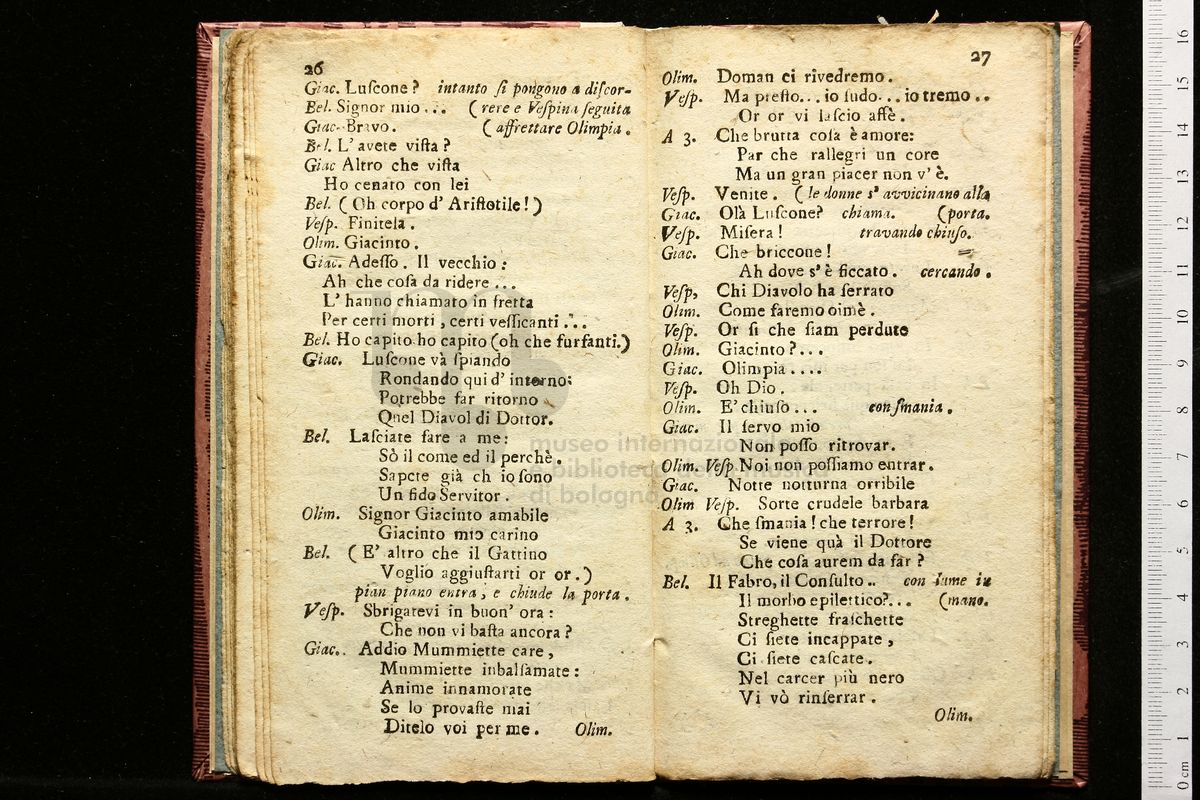 26
Giac. Luſcone? intanto ſi pongono a diſcor-
Bel. Signor mio... (rere e Veſpina ſeguita
Giac. Bravo. (affrettare Olimpia.
Bel. L' avete viſta?
Giac Altro che viſta
Ho cenato con lei
Bel. (Oh corpo d' Ariſtotile!)
Veſp. Finitela.
Olim. Giacinto.
Giac. Adeſſo. Il vecchio:
Ah che coſa da ridere...
L' hanno chiamato in fretta
Per certi morti, certi veſſicanti...
Bel. Ho capito ho capito (oh che furfanti.)
Giac. Luſcone và ſpiando
Rondando qui d' intorno:
Potrebbe far ritorno
Quel Diavol di Dottor.
Bel. Laſciate fare a me:
Sò il come ed il perchè.
Sapete già ch io ſono
Un fido Servitor.
Olim. Signor Giacinto amabile
Giacinto mio carino
Bel. (E' altro che il Gattino
Voglio aggiuſtarti or or.)
pian piano entra, e chiude la porta.
Veſp. Sbrigatevi in buon' ora:
Che non vi baſta ancora?
Giac. Addio Mummiette care,
Mummiette inbalſamate:
Anime innamorate
Se lo provaſte mai
Ditelo voi per me. Olim.
27
Olim. Doman ci rivedremo.
Veſp. Ma preſto... io ſudo... io tremo..
Or or vi laſcio affè.
A 3. Che brutta coſa è amore:
Par che rallegri un core
Ma un gran piacer non v' è.
Veſp. Venite. (le donne s' avvicinano alla
Giac. Olà Luſcone? chiama. (porta.
Veſp. Miſera! travando chiuſo.
Giac. Che briccone!
Ah dove s' è ficcato. cercando.
Veſp, Chi Diavolo ha ſerrato
Olim. Come faremo oimè.
Veſp. Or ſi che ſiam perdute
Olim. Giacinto?...
Giac. Olimpia....
Veſp. Oh Dio.
Olim. E' chiuſo... con ſmania.
Giac. Il ſervo mio
Non poſſo ritrovar.
Olim. Veſp Noi non poſſiamo entrar.
Giac. Notte notturna orribile
Olim Veſp. Sorte crudele barbara
A 3. Che ſmania! che terrore!
Se viene quà il Dottore
Che coſa aurem da far?
Bel. Il Fabro, il Conſulto.. con lume in
Il morbo epilettico?... (mano.
Streghette fraſchette
Ci ſiete incappate,
Ci ſiete caſcate.
Nel carcer più nero
Vi vò rinſerrar.
Olim.
museo internazionale
e biblioteca della musica
di bologna
0 cm 1 2 3 4 5 6 7 8 9 10 11 12 13 14 15 16